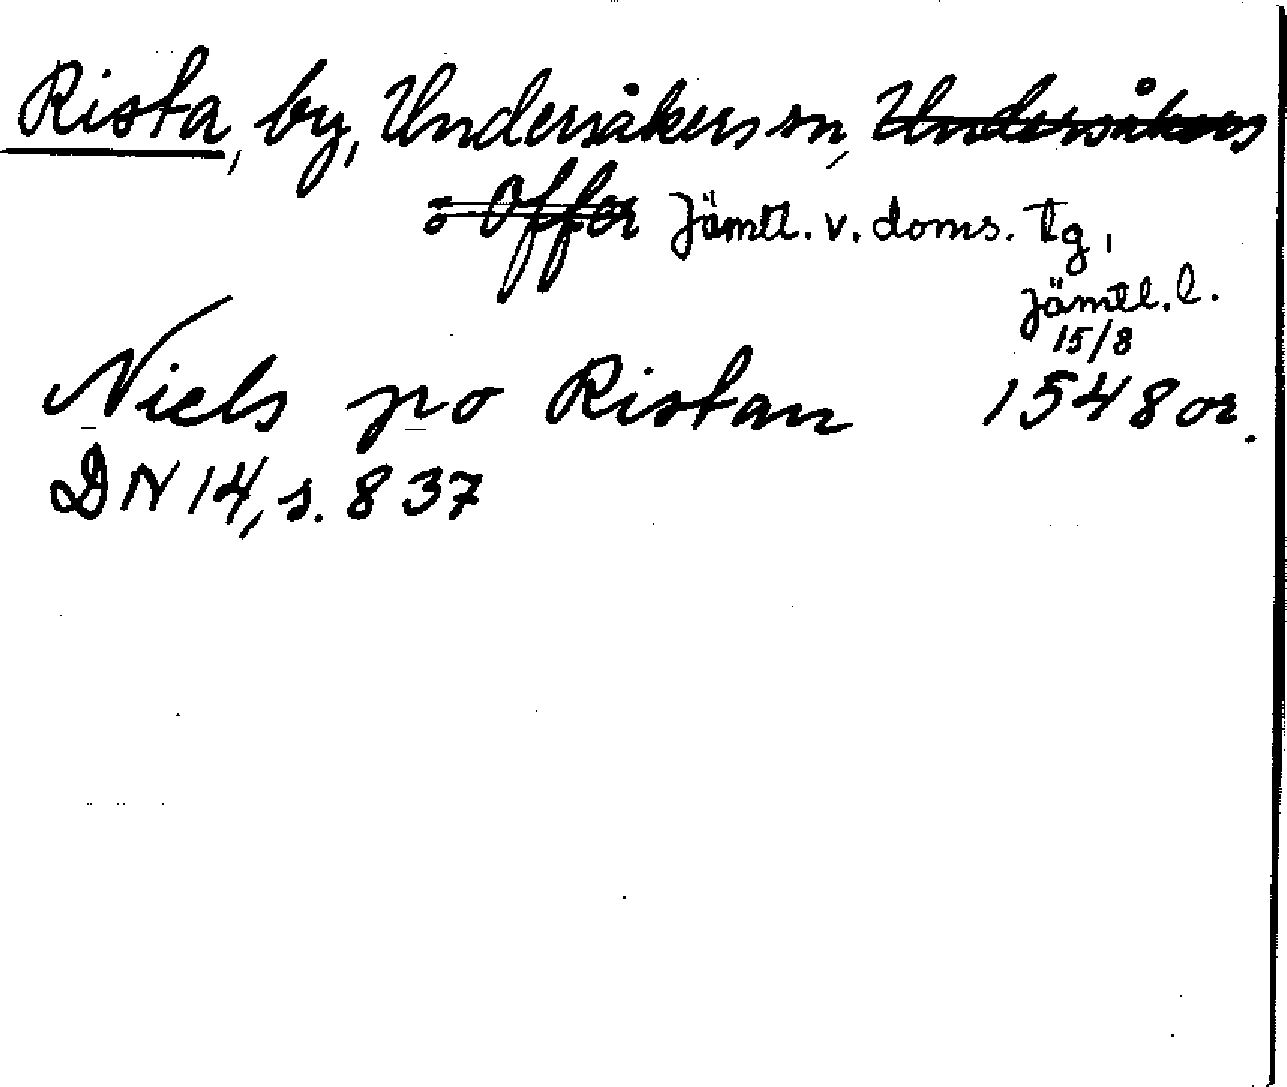 Rista, by, Undersåkers sn, Undersåkers
o Offer Jämtl. v. doms. tg,
Jämtl. l.
15/8
Niels po Ristan 1548 or.
DN 14, s. 837